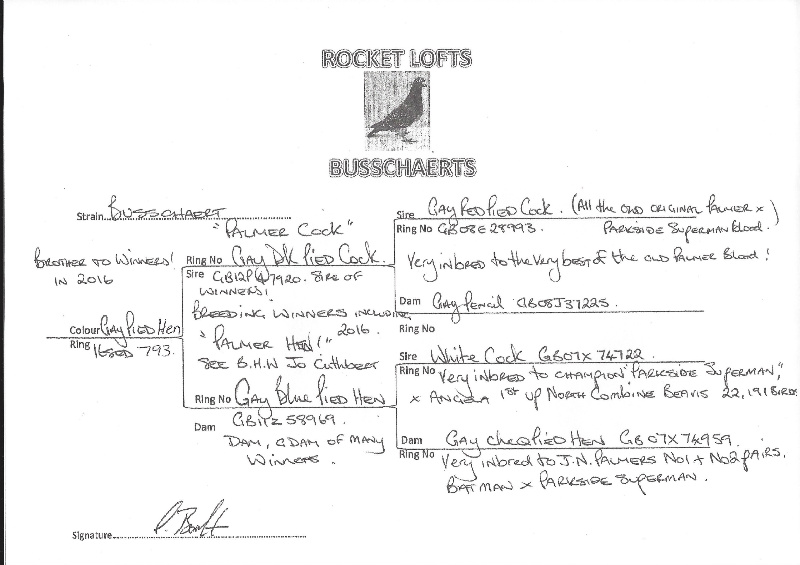 ROCKET LOFTS
BUSSCHAERTS
Strain BUSSCHAERT
BROTHER TO WINNERS!
IN 2016
Colour Gay Pied Hen
Ring 793.
"PALMER COCK"
Ring No Gay Dk Pied Cock.
Sire GB12P 7920. SIRE OF
WINNERS!
BREEDING WINNERS INCLUDING
"PALMER HEN!" 2016.
SEE B.H.W Jo Cuthbert
Ring No Gay Blue Pied HEN
Dam GB11Z 58969.
DAM, GDAM OF MANY
WINNERS.
Sire Gay Red Pied Cock. (All the old original Palmer x
Ring No GB08E 28993. PARKSIDE SUPERMAN Blood.)
Very inbred to the very best of the old Palmer Blood!
Dam Gay Pencil GB08J37225.
Ring No
Sire White Cock GB07X 74722.
Ring No Very inbred to CHAMPION "PARKSIDE SUPERMAN,"
x ANGELA 1st up North Combine BEAVIS 22,191 BIRDS
Dam Gay Cheq Pied Hen GB07X74959.
Ring No Very inbred to J.N. PALMERS No1 + No2 PAIRS.
BATMAN x PARKSIDE SUPERMAN.
Signature